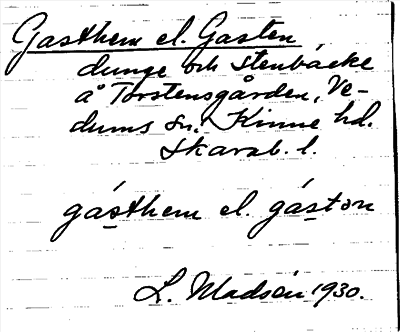 Gasthem el. Gasten
dunge och stenbacke
å Torstensgården, Ve-
dums sn, Kinne hd.
Skarab. l.
gásthem el. gáston
L. Madsén 1930.